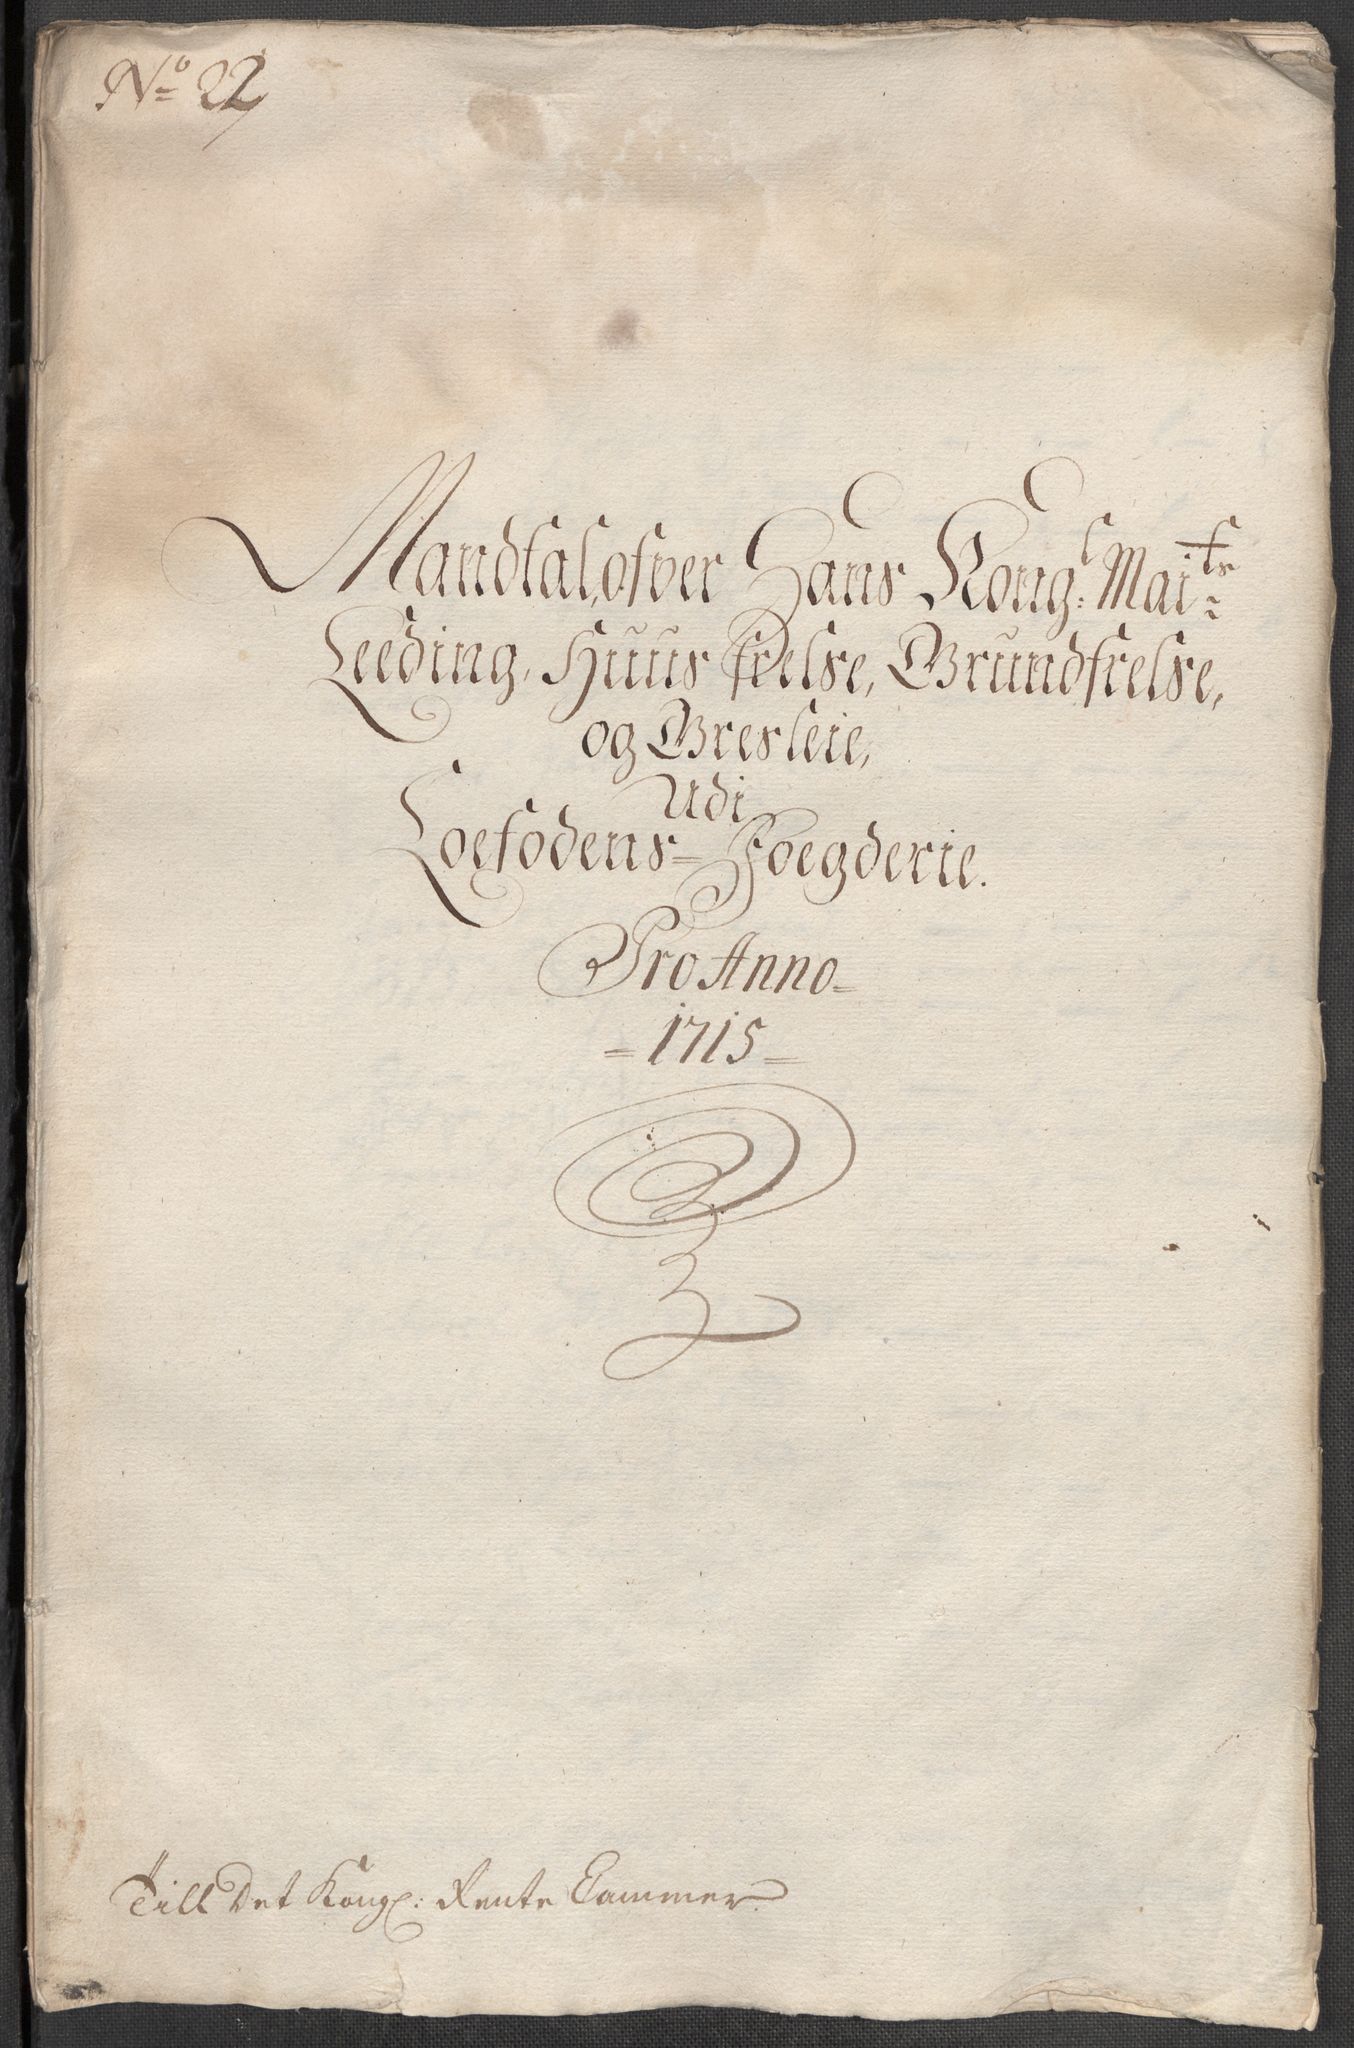 No 22
Mandtal, ofver Hans Kongl: Maits
Leeding, Huus frelse, Grundfrelse,
og Gresleie,
Udi
Loefodens= Foegderie.
Pro Anno=
=1715=
Till Det Kongl: Rente Cammer